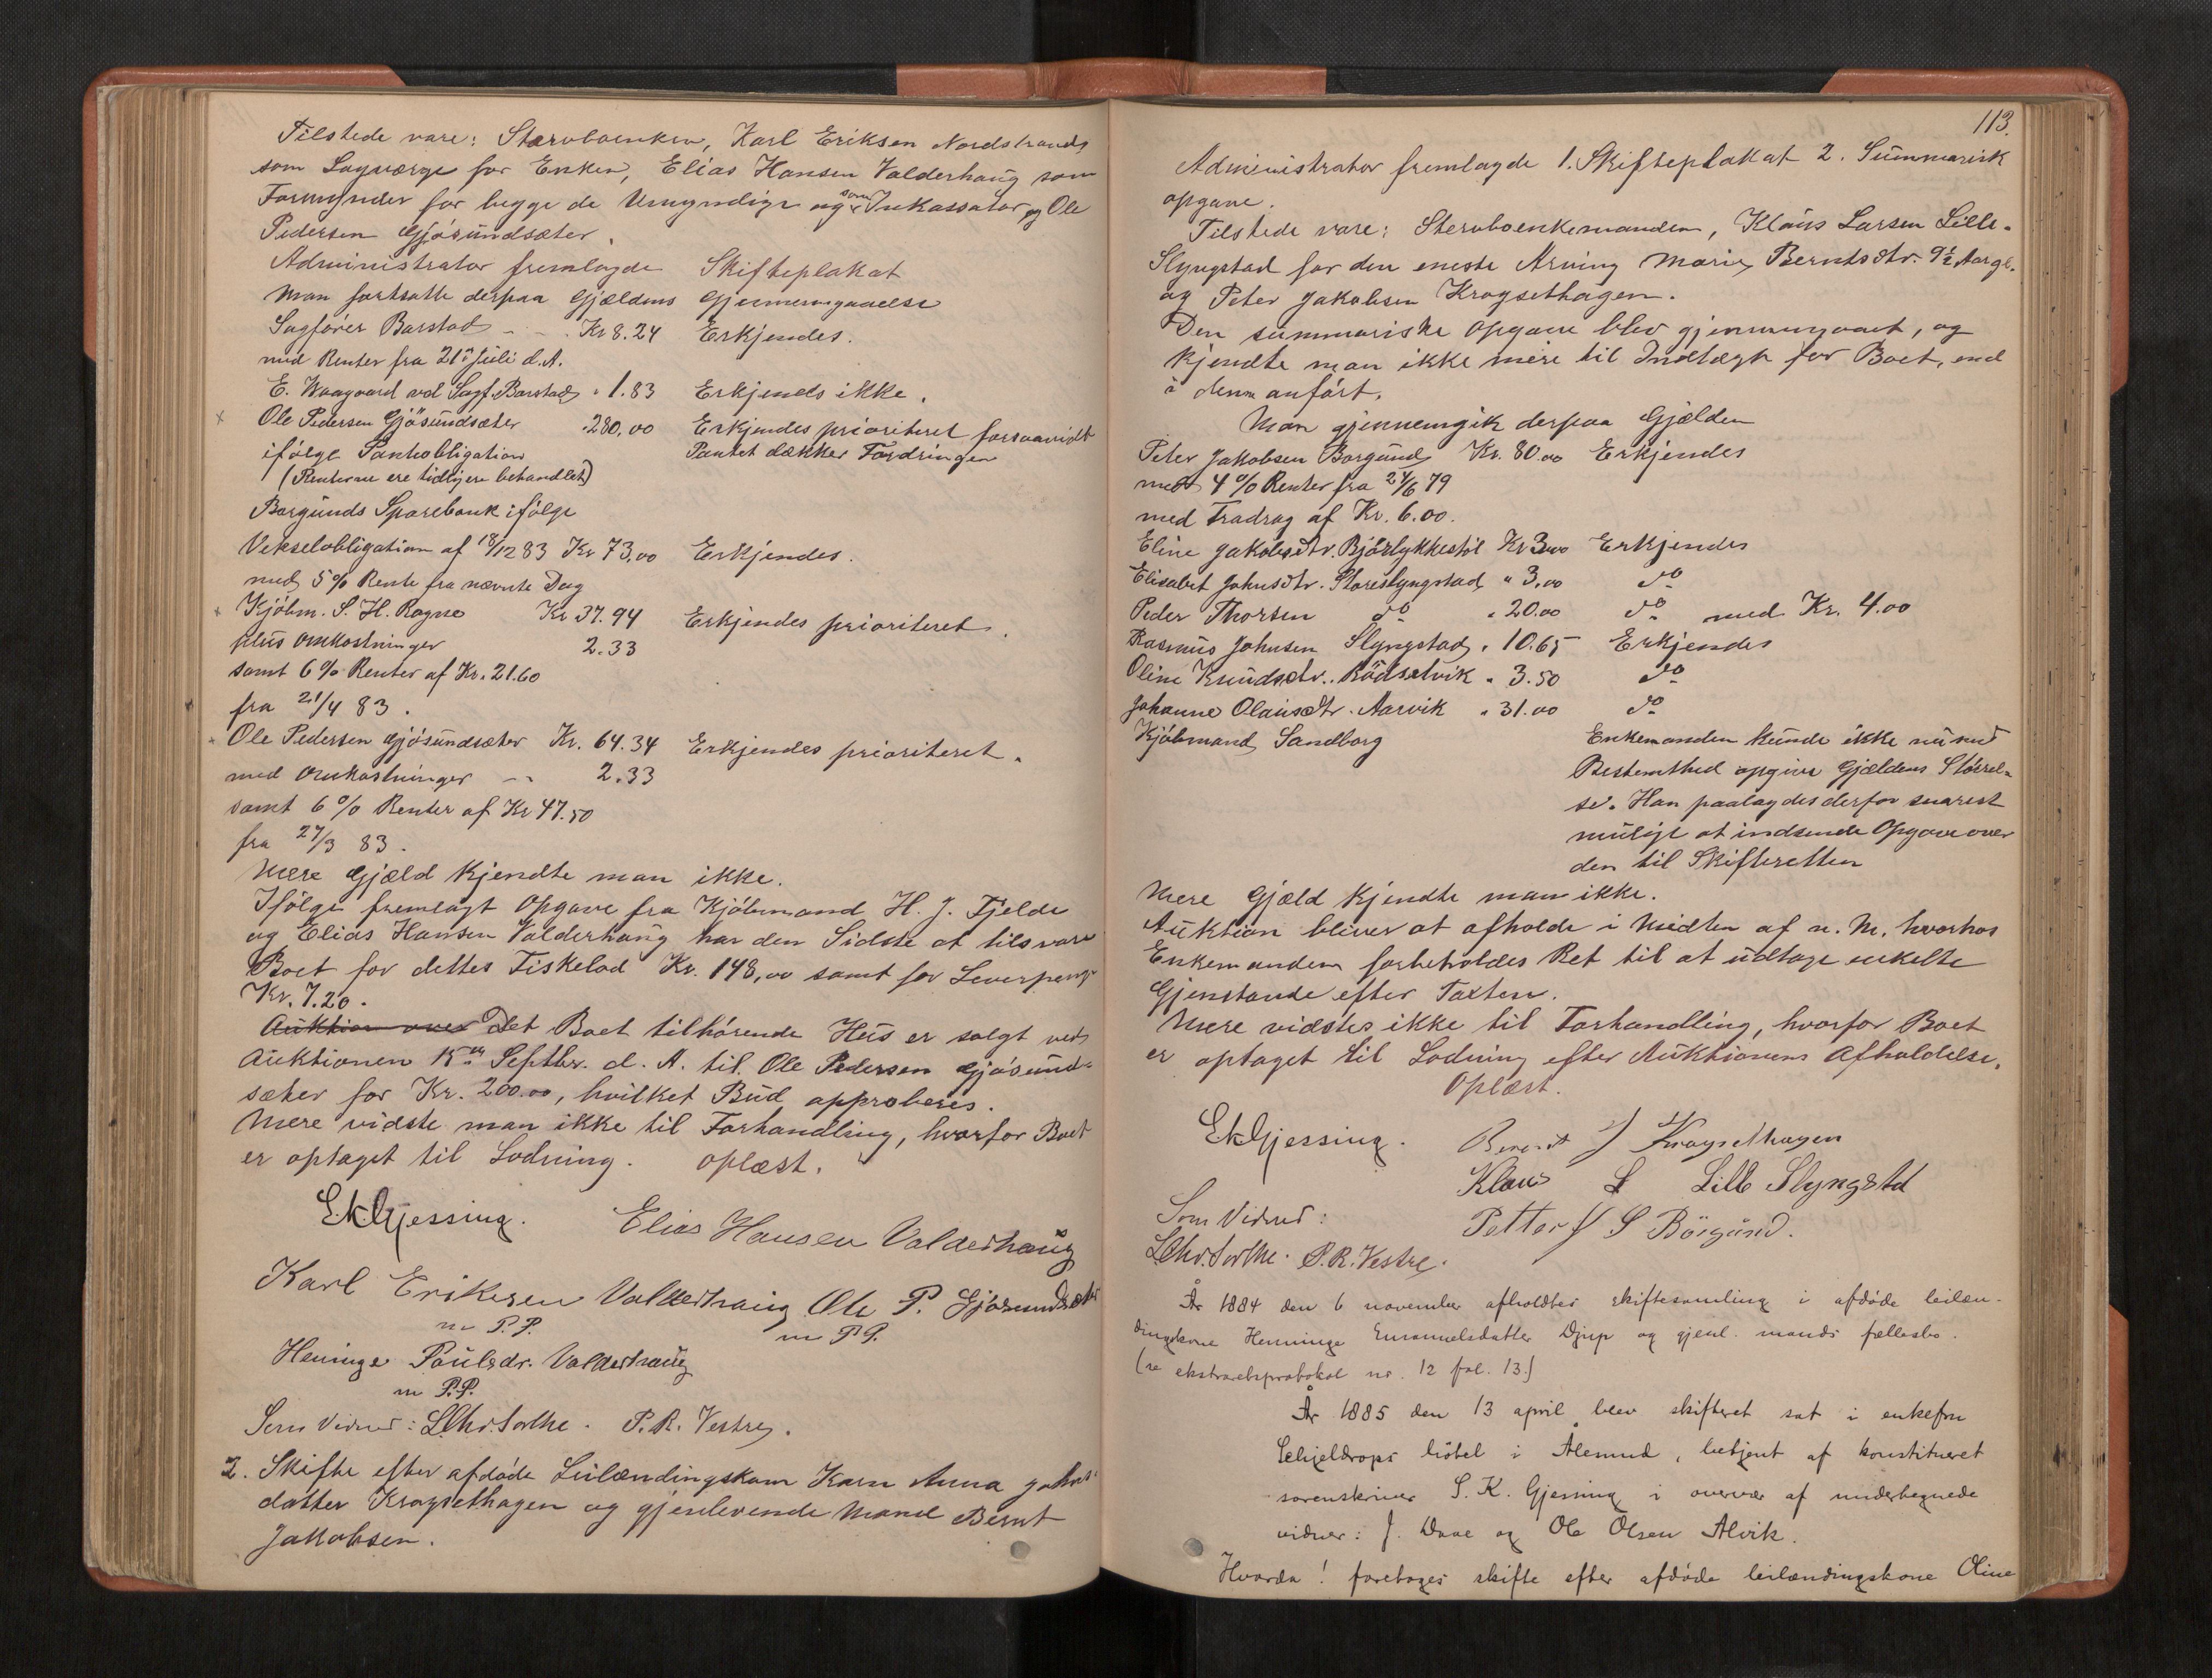 Tilstede vare: Stervboenken, Karl Eriksen Nordstrands
som Lagværge for Enken, Elias Hansen Valderhaug som
Formynder for begge de Umyndige og som Inkassator og Ole
Pedersen Gjösundsæter.
Administrator fremlagde Skifteplakat
Man fortsatte derpaa Gjældens Gjennemgaaelse
Sagfører Barstad - - . Kr 8.24 Erkjendes.
med Renter fra 21de Juli d.A.
E. Waagaard ved Sagf. Barstad " 1.83 Erkjendes ikke.
x Ole Pedersen Gjösundsæter " 280,00 Erkjendes prioriteret forsaavidt
ifölge Pantobligation Pantet dækker Fordringen
(Renterne ere tidligere behandlet)
Borgunds Sparebank ifölge
Vekselobligation af 18/12 83 Kr 73,00 Erkjendes.
med 5% Rente fra nævnte Dag
x Kjöbm. S. H. Rogne Kr 37.94 Erkjendes prioriteret.
plus Omkostninger 2.33
samt 6% Renter af Kr. 21.60
fra 21/4 83.
x Ole Pedersen Gjösundsæter Kr. 64.34 Erkjendes prioriteret.
med Omkostninger - - 2.33
samt 6% Renter af Kr 47.50
fra 27/3 83.
Mere Gjæld kjendte man ikke.
Ifölge fremlagt Opgave fra Kjöbmand H. J. Fjelde
og Elias Hansen Valderhaug har den Sidste at tilsvare
Boet for dettes Fiskelod Kr. 148,00 samt for Leverpenge
Kr. 7.20.
Auktion over Det Boet tilhörende Hus er solgt ved
Auktionen Septbr. d. A. til Ole Pedersen Gjösund-
sæter for Kr. 200.00, hvilket Bud approberes.
Mere vidste man ikke til Forhandling, hvorfor Boet
er optaget til Lodning. Oplæst.
EkGjessing. Elias Hansen Valderhaug
Karl Eriksen Valderhaug Ole P. Gjösundsæter
m P.P. m P.P.
Heninge Paulsdr. Valderhaug
m P.P.
Som Vidner: LChr. Sorthe. P. R. Vestre.
2. Skifte efter afdøde Leilændingskone Karn Anna Johns-
datter Krogsethagen og gjenlevende Mand Bernt
Jakobsen.
113.
Administrator fremlagde 1. Skifteplakat 2. Summarisk
opgave.
Tilstede vare: Stervboenkemanden, Klaus Larsen Lille-
Slyngstad for den eneste Arving Marie Berntsdtr. 9½ Aar gl.
og Peter Jakobsen Krogsethagen.
Den summariske Opgave blev gjennemgaaet, og
kjendte man ikke mere til Indtægt for Boet, end
i denne anført.
Man gjennemgik derpaa Gjælden
Peter Jakobsen Borgund Kr. 80.00 Erkjendes
med 4% Renter fra 24/6 79
med Fradrag af Kr. 6.00.
Eline Jakobsdtr. Björlykkestöl Kr 3.00 Erkjendes
Elisabet Johnsdtr. Storeslyngstad " 3.00 do
Peder Thorsen do " 20.00 do med Kr. 4.00
Rasmus Johnsen Slyngstad " 10.65 Erkjendes
Oline Knudsdtr. Rödsetvik " 3.50 do
Johanne Olausdtr. Aarvik " 31.00 do
Kjöbmand Sandborg Enkemanden kunde ikke nu med
Bestemthed opgive Gjældens Størrel-
se. Han paalagdes derfor snarest
muligt at indsende Opgave over
den til Skifteretten
Mere Gjæld kjendte man ikke.
Auktion bliver at afholde i Midten af n. M. hvorhos
Enkemanden forbeholdes Ret til at udtage enkelte
Gjenstande efter Taxten.
Mere vidstes ikke til Forhandling, hvorfor Boet
er optaget til Lodning efter Auktionens Afholdelse.
Oplæst.
EkGjessing. Berent J Krogsethagen
Klaus L Lille Slyngstd
Som Vidner: Petter J S Börgund.
LChr. Sorthe. P. R. Vestre.
År 1884 den 6 november afholdtes skiftesamling i afdøde leilæn-
dingskone Henninge Emanuelsdatter Djup og gjenl. mands fællesbo.
(se ekstraretsprotokol no. 12 fol. 13.)
År 1885 den 13 april blev skifteret sat i enkefru
Schjeldrops hôtel i Ålesund, betjent af konstitueret
sorenskriver S. K. Gjessing i overvær af undertegnede
vidner: J. Daae og Ole Olsen Alvik.
Hvorda! foretoges skifte efter afdøde leilændingskone Oline